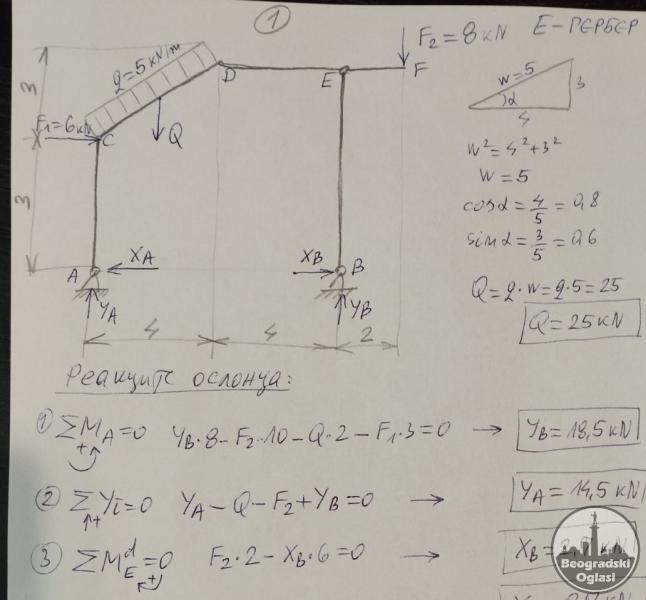 1
F₂=8 кN
Е-ГЕРБЕР
q=5 кN/m
F₁=6кN
C
D
E
F
Q
3
3
A
XA
YA
XB
B
YB
4
4
2
w=5
α
3
4
w²=4²+3²
w=5
cosα=4/5=0,8
sinα=3/5=0,6
Q=q·w=q·5=25
Q=25кN
Реакције ослонца:
① ΣMA=0 YB·8-F₂·10-Q·2-F₁·3=0 → YB=18,5кN
② ΣYi=0 YA-Q-F₂+YB=0 → YA=14,5кN
③ ΣM_E^d=0 F₂·2-XB·6=0 → XB=
Beogradski
Oglasi